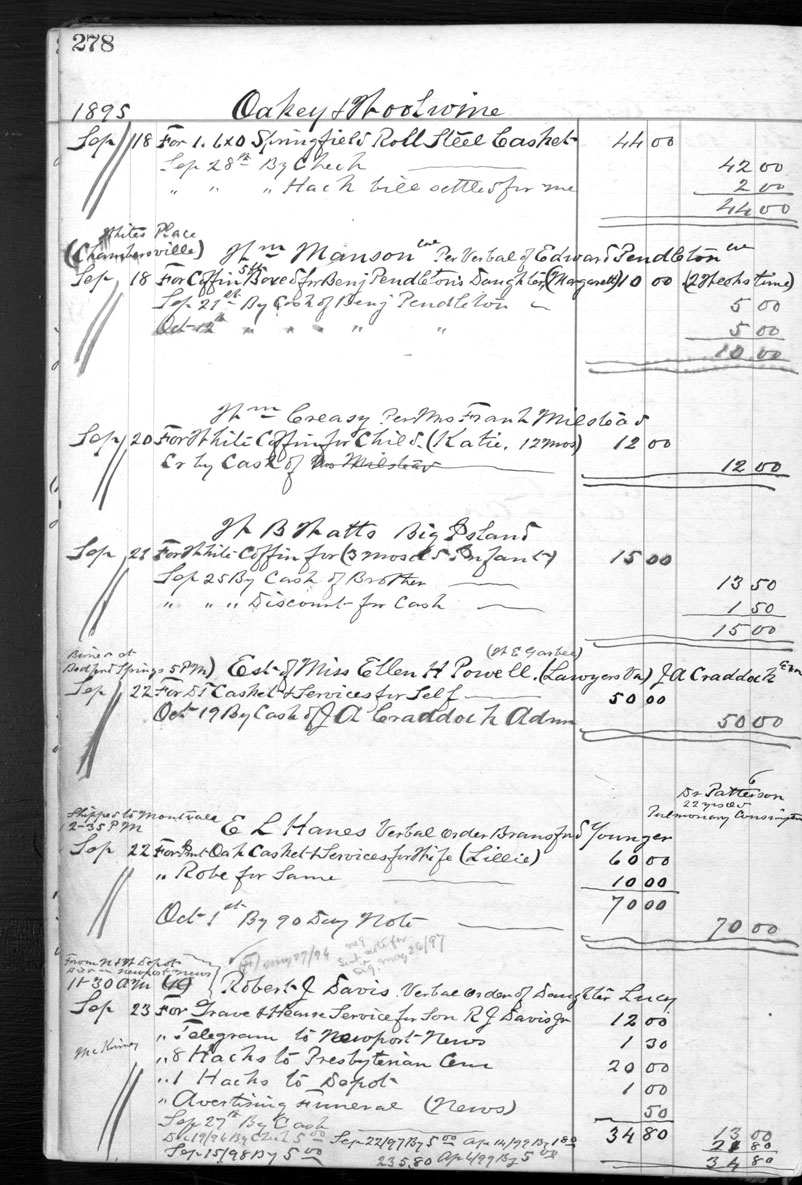 278
1895 Oakey & Woolwine
Sep 18 For 1. 6x0 Springfield Roll Steel Casket 44 00
Sep 28th By Check 42 00
" " " Hack bill settled for me 2 00
44 00
Whites Place
(Chambersville) Wm Manson col Per Verbal of Edward Pendleton col
Sep 18 For Coffin 5ft Boxed for Benj Pendleton's Daughter (Margarett) 10 00 (2 Weeks time)
Sep 21st By Cash of Benj Pendleton 5 00
Oct 12th " " " " " 5 00
10 00
Wm Creasy Per Mrs Frank Milstead
Sep 20 For White Coffin for Child. (Katie. 12 mos) 12 00
Cr by Cash of Mrs Milstead 12 00
W B Watts Big Island
Sep 21 For White Coffin for (3 mos Infant) 15 00
Sep 25 By Cash of Brother 13 50
" " " Discount for Cash 1 50
15 00
(W E Garbee)
Buried at
Bedford Springs 5 PM) Est of Miss Ellen H Powell. (Lawyers Va) J A Craddock
Sep 22 For Casket & Services for Self 50 00
Oct 19 By Cash of J A Craddock Admr 50 00
Dr Patteson
22 yrs old
Pulmonary Consumption
Shipped to Montvale
2-35 PM E L Hanes Verbal order Bransford Younger
Sep 22 For Oak Casket & Services for Wife (Lillie) 60 00
" Robe for Same 10 00
70 00
Oct 1st By 90 Day Note 70 00
From N & W Depot
Died in Newport News
11-30 AM Robert J Davis. Verbal order of Daughter Lucy
Sep 23 For Grave & Hearse Service for Son R J Davis Jr 12 00
" Telegram to Newport News 1 30
McKinney " 8 Hacks to Presbyterian Cem 20 00
" 1 Hacks to Depot 1 00
" Avertising Funeral (News) 50
Sep 27th By Cash 34 80 13 00
Dec 19/96 By Check 5 00 Sep 22/97 By 5 00 Apr 14/99 By 1 80 21 80
Sep 15/98 By 5 00 235.80 Apr 4/99 By 5 00 34 80